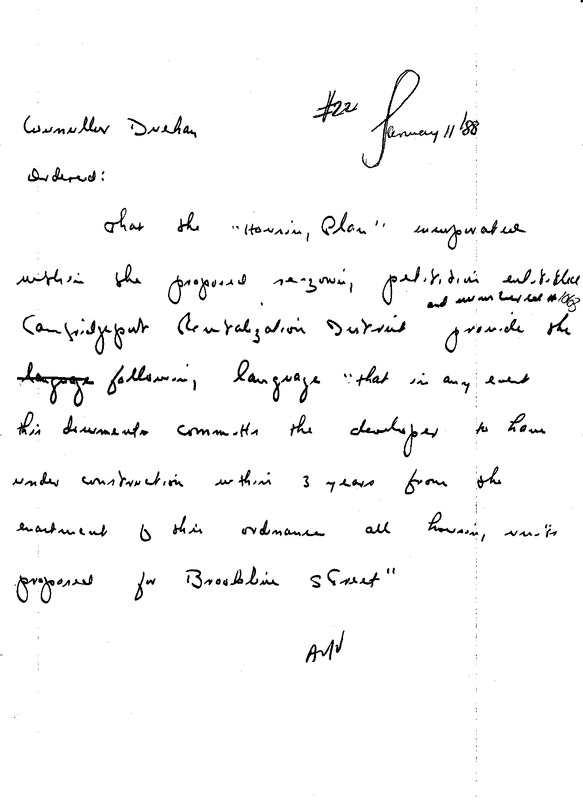 #22 January 11 '88
Councillor Duehay
Ordered:
that the "Housing Plan" incorporated
within the proposed re-zoning petition entitled
and numbered #1063
Cambridgeport Revitalization District provide the
language following language "that in any event
this documents committs the developer to have
under construction within 3 years from the
enactment of this ordinance all housing units
proposed for Brookline Street"